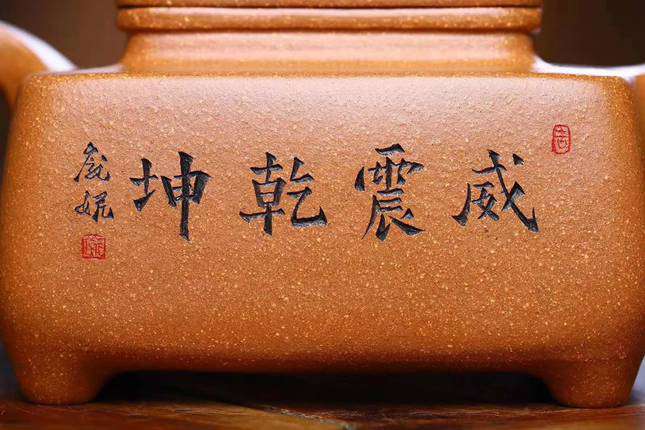 威震乾坤